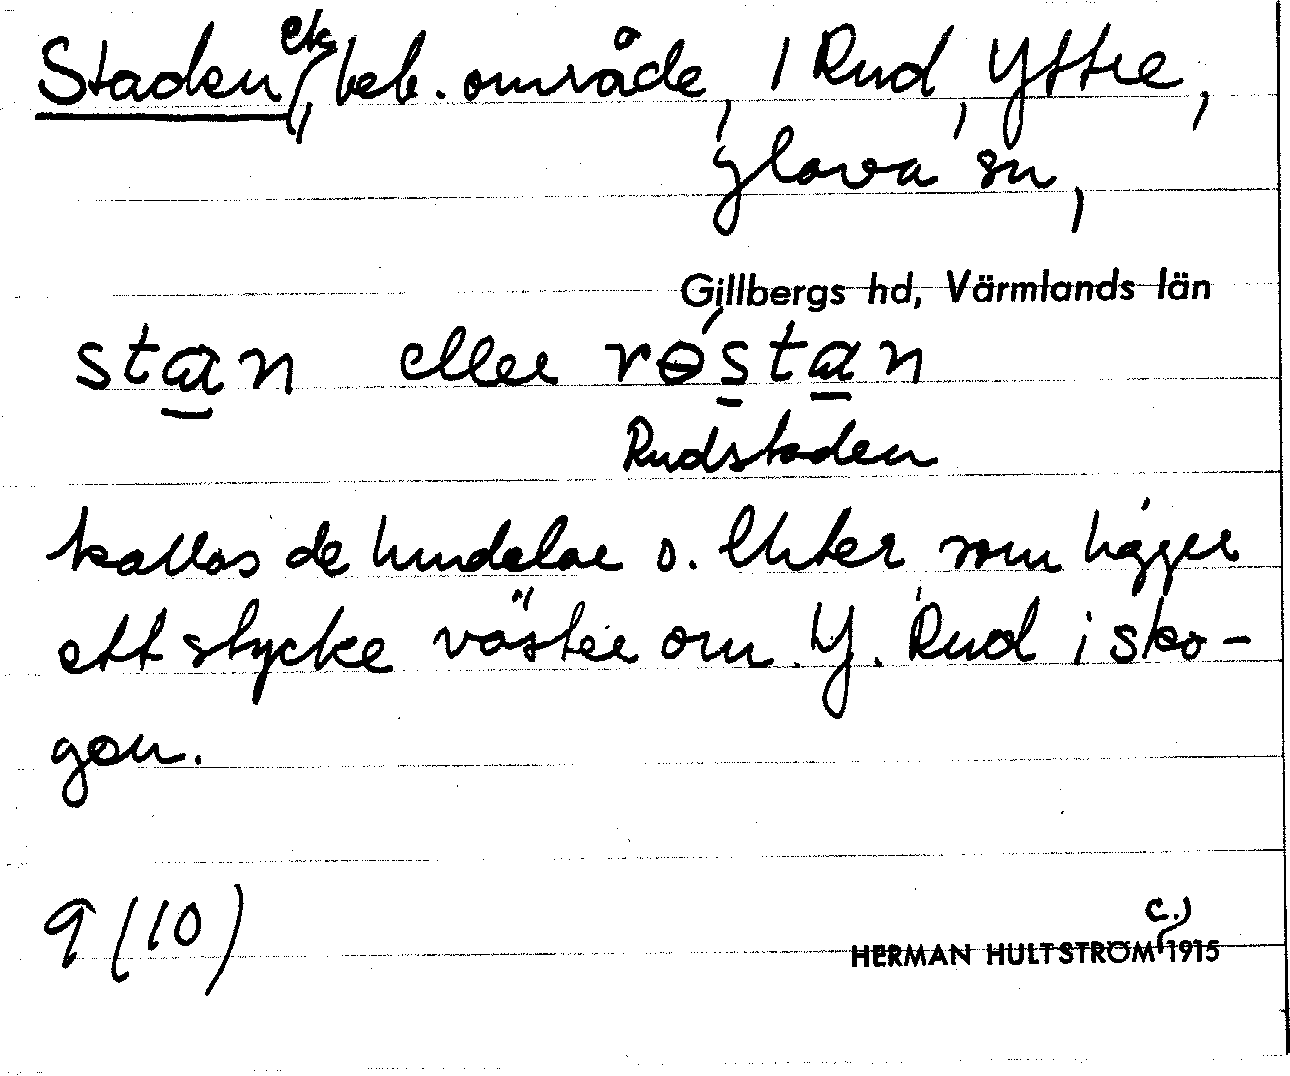 Staden, etc beb. område, i Rud, Yttre,
Glava sn,
Gillbergs hd, Värmlands län
stan eller røstan
Rudstaden
kallas de hemdelar o. lhter som ligger
ett stycke väster om Y. Rud i sko-
gen.
9 (10)
HERMAN HULTSTRÖM c.) 1915